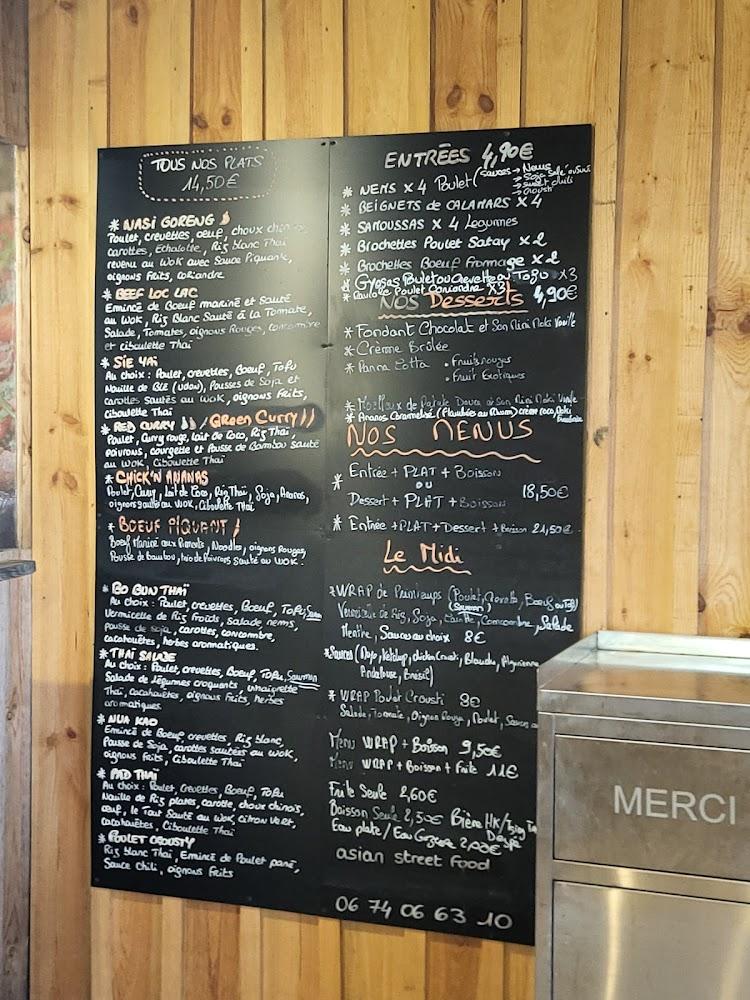 TOUS NOS PLATS
14,50€
* NASI GORENG
Poulet, crevettes, oeuf, choux chinois,
carottes, Echalotte, Riz blanc Thaï
revenu au wok avec Sauce Piquante,
oignons Frits, coriandre
* BEEF LOC LAC
Emincé de Boeuf mariné et Sauté
au Wok, Riz Blanc Sauté à la Tomate,
Salade, Tomates, oignons Rouges, concombre
et ciboulette Thaï
* SIE YAI
Au choix : Poulet, crevettes, Boeuf, Tofu
Nouille de Blé (udon), Pousses de Soja et
carottes sautés au wok, oignons Frits,
Ciboulette Thaï
* RED CURRY / GREEN CURRY
Poulet, Curry rouge, Lait de Coco, Riz Thaï,
Poivrons, courgette et Pousse de Bambou sauté
au Wok, Ciboulette Thaï
* CHICK'N ANANAS
Poulet, Curry, Lait de Coco, Riz Thaï, Soja, Ananas,
oignons sauté au Wok, Ciboulette Thaï
* BOEUF PIQUANT
Boeuf Mariné aux Piments, Noodles, oignons Rouges,
Pousse de bambou, trio de Poivrons Sauté au WOK.
* BO BUN THAÏ
Au choix : Poulet, crevettes, Boeuf, Tofu, Saumon
Vermicelle de Riz Froids, Salade, nems,
pousse de soja, carottes, concombre,
cacahouètes, herbes aromatiques.
* THAI SALADE
Au choix : Poulet, crevettes, Boeuf, Tofu, Saumon
Salade de légumes croquants, vinaigrette
Thaï, Cacahouètes, oignons Frits, herbes
aromatiques.
* NUA KAO
Emincé de Boeuf, crevettes, Riz blanc,
Pousse de Soja, carottes sautées au wok,
oignons Frits, Ciboulette Thaï
* PAD THAÏ
Au choix : Poulet, Crevettes, Boeuf, Tofu
Nouille de Riz plates, carotte, choux chinois,
oeuf, le Tout Sauté au wok, citron Vert,
cacahouètes, Ciboulette Thaï
* POULET CROUSTY
Riz blanc Thaï, Emincé de Poulet pané,
Sauce chili, oignons Frits
ENTRÉES 4,90€
* NEMS x 4 Poulet (sauces → Nems
→ Soja salé ou Sucré
→ sweet chili
→ crousti
* BEIGNETS de CALAMARS x 4
* SAMOUSSAS x 4 Legumes
* Brochettes Poulet Satay x 2
* Brochettes Boeuf Fromage x 2
* Gyosas Poulet ou Crevette ou Tofu x3
* Ravioli Poulet Coriandre x3
NOS Desserts 4,90€
* Fondant Chocolat et Son Mini Moki Vanille
* Crème Brûlée
* Panna Cotta . Fruits rouges
. Fruit Exotiques
* Moelleux de Patate Douce et son Mini Moki Vanille
* Ananas Caramelisé (Flambée au Rhum) crème coco, Moki
NOS MENUS
* Entrée + PLAT + Boisson
OU
Dessert + PLAT + Boisson 18,50€
* Entrée + PLAT + Dessert + Boisson 21,50€
Le Midi
* WRAP de Printemps (Poulet, Crevette, Boeuf ou Tofu)
(Saumon)
Vermicelle de Riz, Soja, Carotte, Concombre, Salade
Menthe, Sauce au choix 8€
* Sauces (Mayo, Ketchup, chicken Crousti, Blanche, Algerienne,
Andalouse, Brésil)
* WRAP Poulet Crousti 8€
Salade, Tomate, Oignon Rouge, Poulet, Sauce au
Menu WRAP + Boisson 9,50€
Menu WRAP + Boisson + Frite 11€
Frite Seule 2,60€
Boisson Seule 2,50€ Bière HK/Tsing Tao
Eau plate / Eau Gazeuse 2,00€
asian street food
06 74 06 63 10
MERCI